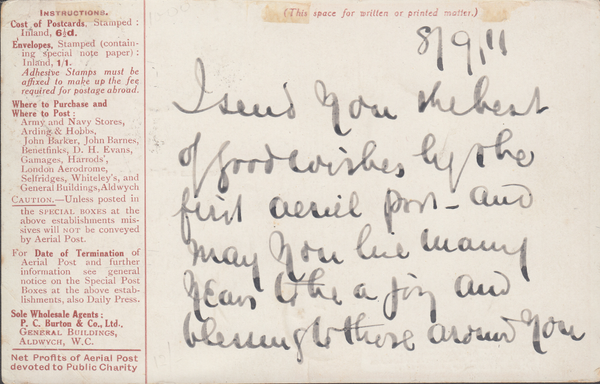 INSTRUCTIONS.
Cost of Postcards, Stamped :
Inland, 6½d.
Envelopes, Stamped (contain-
ing special note paper) :
Inland, 1/1.
Adhesive Stamps must be
affixed to make up the fee
required for postage abroad.
Where to Purchase and
Where to Post :
Army and Navy Stores,
Arding & Hobbs,
John Barker, John Barnes,
Benetfinks, D. H. Evans,
Gamages, Harrods',
London Aerodrome,
Selfridges, Whiteley's, and
General Buildings, Aldwych
CAUTION.—Unless posted in
the SPECIAL BOXES at the
above establishments mis-
sives will NOT be conveyed
by Aerial Post.
For Date of Termination of
Aerial Post and further
information see general
notice on the Special Post
Boxes at the above estab-
lishments, also Daily Press.
Sole Wholesale Agents :
P. C. Burton & Co., Ltd.,
GENERAL BUILDINGS,
ALDWYCH, W.C.
Net Profits of Aerial Post
devoted to Public Charity
(This space for written or printed matter.)
8/9/11
I send you the best
of good wishes by the
first aeriel post - and
may you live many
years to be a joy and
blessing to those around you